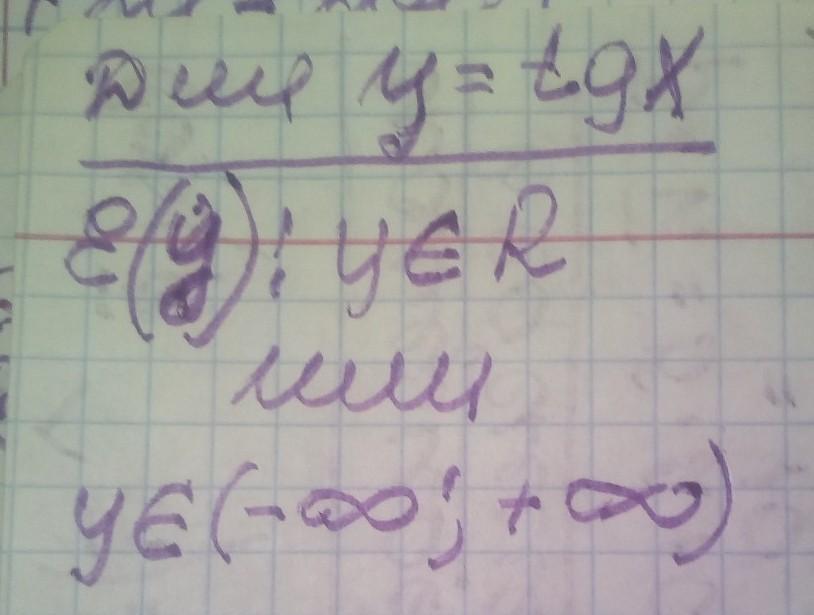 Для y = tgx
E(y): y ∈ R
или
y ∈ (-∞; +∞)